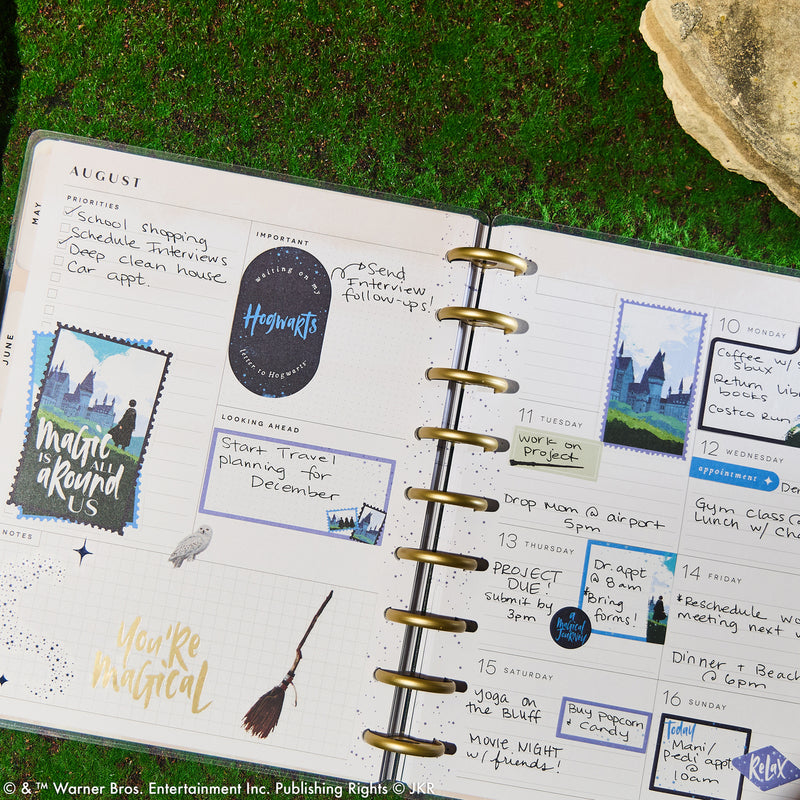 AUGUST
MAY
JUNE
PRIORITIES
School shopping
Schedule Interviews
Deep clean house
Car appt.
IMPORTANT
waiting on my
Hogwarts
letter to Hogwarts
Send
Interview
follow-ups!
MAGIC
IS ALL
AROUND
US
LOOKING AHEAD
Start Travel
planning for
December
NOTES
You're
Magical
10 MONDAY
Coffee w/
Sbux
Return
books
Costco Run
11 TUESDAY
work on
project
Drop Mom @ airport
5pm
12 WEDNESDAY
appointment
Gym class @
Lunch w/
13 THURSDAY
PROJECT
DUE!
submit by
3pm
Dr. appt
@ 8am
*Bring
forms!
a
Magical
Journey
14 FRIDAY
*Reschedule
meeting next
Dinner + Beach
@ 6pm
15 SATURDAY
yoga on
the Bluff
Buy popcorn
& candy
MOVIE NIGHT
w/ friends!
16 SUNDAY
Today
Mani/
pedi appt
@ 10am
RELAX
© & ™ Warner Bros. Entertainment Inc. Publishing Rights © JKR